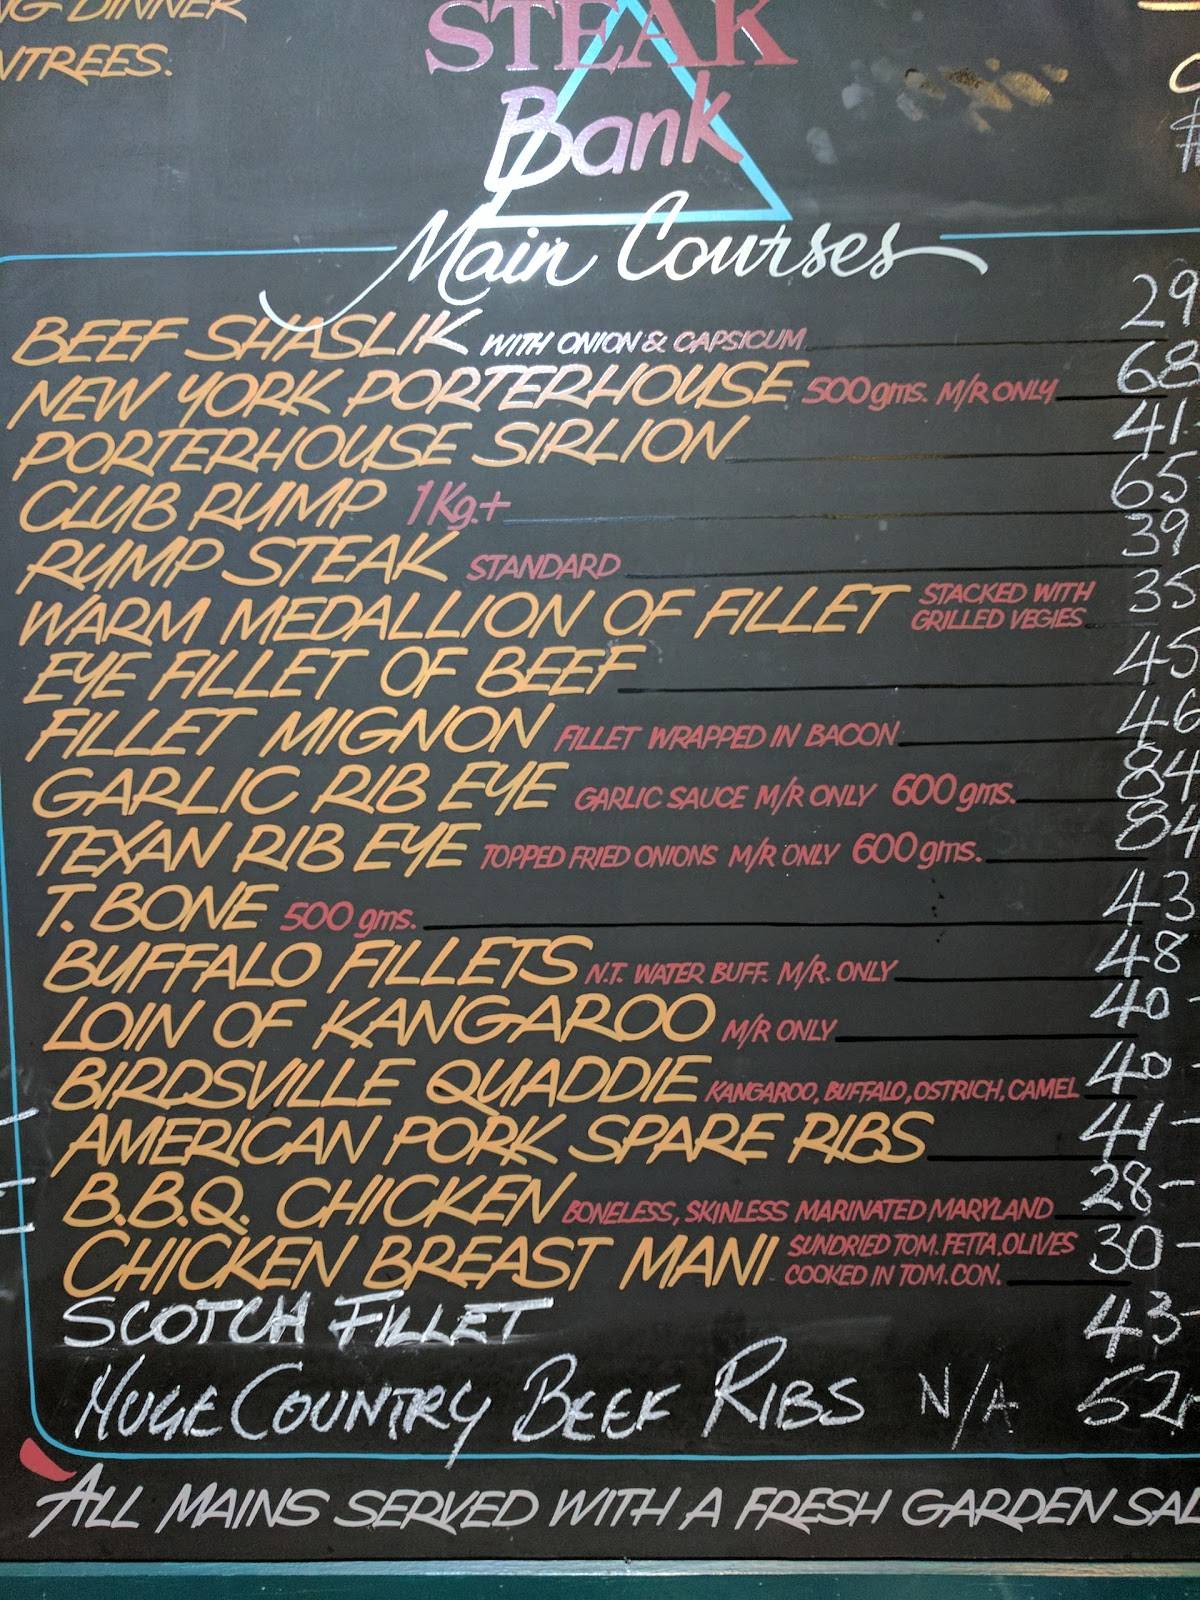 DINNER
STEAK
Bank
Main Courses
BEEF SHASLIK WITH ONION & CAPSICUM 29
NEW YORK PORTERHOUSE 500gms. M/R ONLY 68
PORTERHOUSE SIRLION 41-
CLUB RUMP 1Kg.+ 65
RUMP STEAK STANDARD 39
WARM MEDALLION OF FILLET STACKED WITH GRILLED VEGIES 35
EYE FILLET OF BEEF 45
FILLET MIGNON FILLET WRAPPED IN BACON 46
GARLIC RIB EYE GARLIC SAUCE M/R ONLY 600gms. 84
TEXAN RIB EYE TOPPED FRIED ONIONS M/R ONLY 600gms. 84
T. BONE 500 gms. 43
BUFFALO FILLETS N.T. WATER BUFF. M/R. ONLY 48
LOIN OF KANGAROO M/R ONLY 40-
BIRDSVILLE QUADDIE KANGAROO, BUFFALO, OSTRICH, CAMEL 40-
AMERICAN PORK SPARE RIBS 41-
B.B.Q. CHICKEN BONELESS, SKINLESS MARINATED MARYLAND 28-
CHICKEN BREAST MANI SUNDRIED TOM. FETTA. OLIVES COOKED IN TOM. CON. 30-
SCOTCH FILLET 43-
HUGE COUNTRY BEEF RIBS N/A 52
ALL MAINS SERVED WITH A FRESH GARDEN